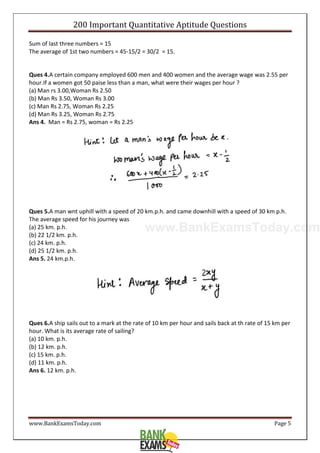 200 Important Quantitative Aptitude Questions
Sum of last three numbers = 15
The average of 1st two numbers = 45-15/2 = 30/2 = 15.
Ques 4.A certain company employed 600 men and 400 women and the average wage was 2.55 per
hour.If a women got 50 paise less than a man, what were their wages per hour ?
(a) Man rs 3.00,Woman Rs 2.50
(b) Man Rs 3.50, Woman Rs 3.00
(c) Man Rs 2.75, Woman Rs 2.25
(d) Man Rs 3.25, Woman Rs 2.75
Ans 4. Man = Rs 2.75, woman = Rs 2.25
Hint: Let a man's wage Per hour be x.
Woman's wage Per hour = x - 1/2
∴ 600x + 400(x - 1/2) / 1000 = 2.25
Ques 5.A man wnt uphill with a speed of 20 km.p.h. and came downhill with a speed of 30 km p.h.
The average speed for his journey was
(a) 25 km. p.h.
www.BankExamsToday.com
(b) 22 1/2 km. p.h.
(c) 24 km. p.h.
(d) 25 1/2 km. p.h.
Ans 5. 24 km.p.h.
Hint: Average Speed = 2xy / x + y
Ques 6.A ship sails out to a mark at the rate of 10 km per hour and sails back at th rate of 15 km per
hour. What is its average rate of sailing?
(a) 10 km. p.h.
(b) 12 km. p.h.
(c) 15 km. p.h.
(d) 11 km. p.h.
Ans 6. 12 km. p.h.
www.BankExamsToday.com Page 5
BANK
EXAMS
Today